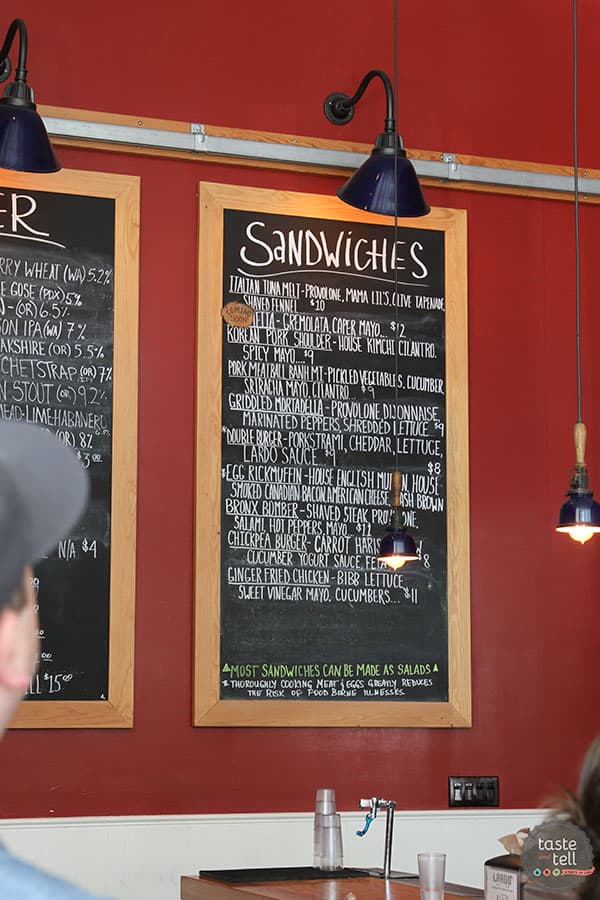 ER
RRY WHEAT (WA) 5.2%
E GOSE (PDX) 5%
N - (OR) 6.5%
SON IPA (WA) 7%
AKSHIRE (OR) 5.5%
CHETSTRAP (OR) 7%
N STOUT (OR) 9.2%
MEAD-LIME HABANERO
(OR) 8%
$3.00
N/A $4
ILL $15.00
SANDWICHES
ITALIAN TUNA MELT - PROVOLONE, MAMA LIL'S, OLIVE TAPENADE,
SHAVED FENNEL $10
COMING SOON!
- GREMOLATA, CAPER MAYO... $12
KOREAN PORK SHOULDER - HOUSE KIMCHI CILANTRO,
SPICY MAYO... $9
PORK MEATBALL BANH MI - PICKLED VEGETABLES, CUCUMBER,
SRIRACHA MAYO, CILANTRO... $9
GRIDDLED MORTADELLA - PROVOLONE DIJONNAISE,
MARINATED PEPPERS, SHREDDED LETTUCE $9
*DOUBLE BURGER - PORKSTRAMI, CHEDDAR, LETTUCE,
LARDO SAUCE... $9
$8
*EGG RICKMUFFIN - HOUSE ENGLISH MUFFIN, HOUSE
SMOKED CANADIAN BACON, AMERICAN CHEESE, HASH BROWN
BRONX BOMBER - SHAVED STEAK PROVOLONE,
SALAMI, HOT PEPPERS, MAYO... $11
CHICKPEA BURGER - CARROT HARISSA
CUCUMBER YOGURT SAUCE, FETA 8
GINGER FRIED CHICKEN - BIBB LETTUCE,
SWEET VINEGAR MAYO, CUCUMBERS... $11
MOST SANDWICHES CAN BE MADE AS SALADS
* THOROUGHLY COOKING MEAT & EGGS GREATLY REDUCES
THE RISK OF FOOD BORNE ILLNESSES.
LARDO
taste
and
tell